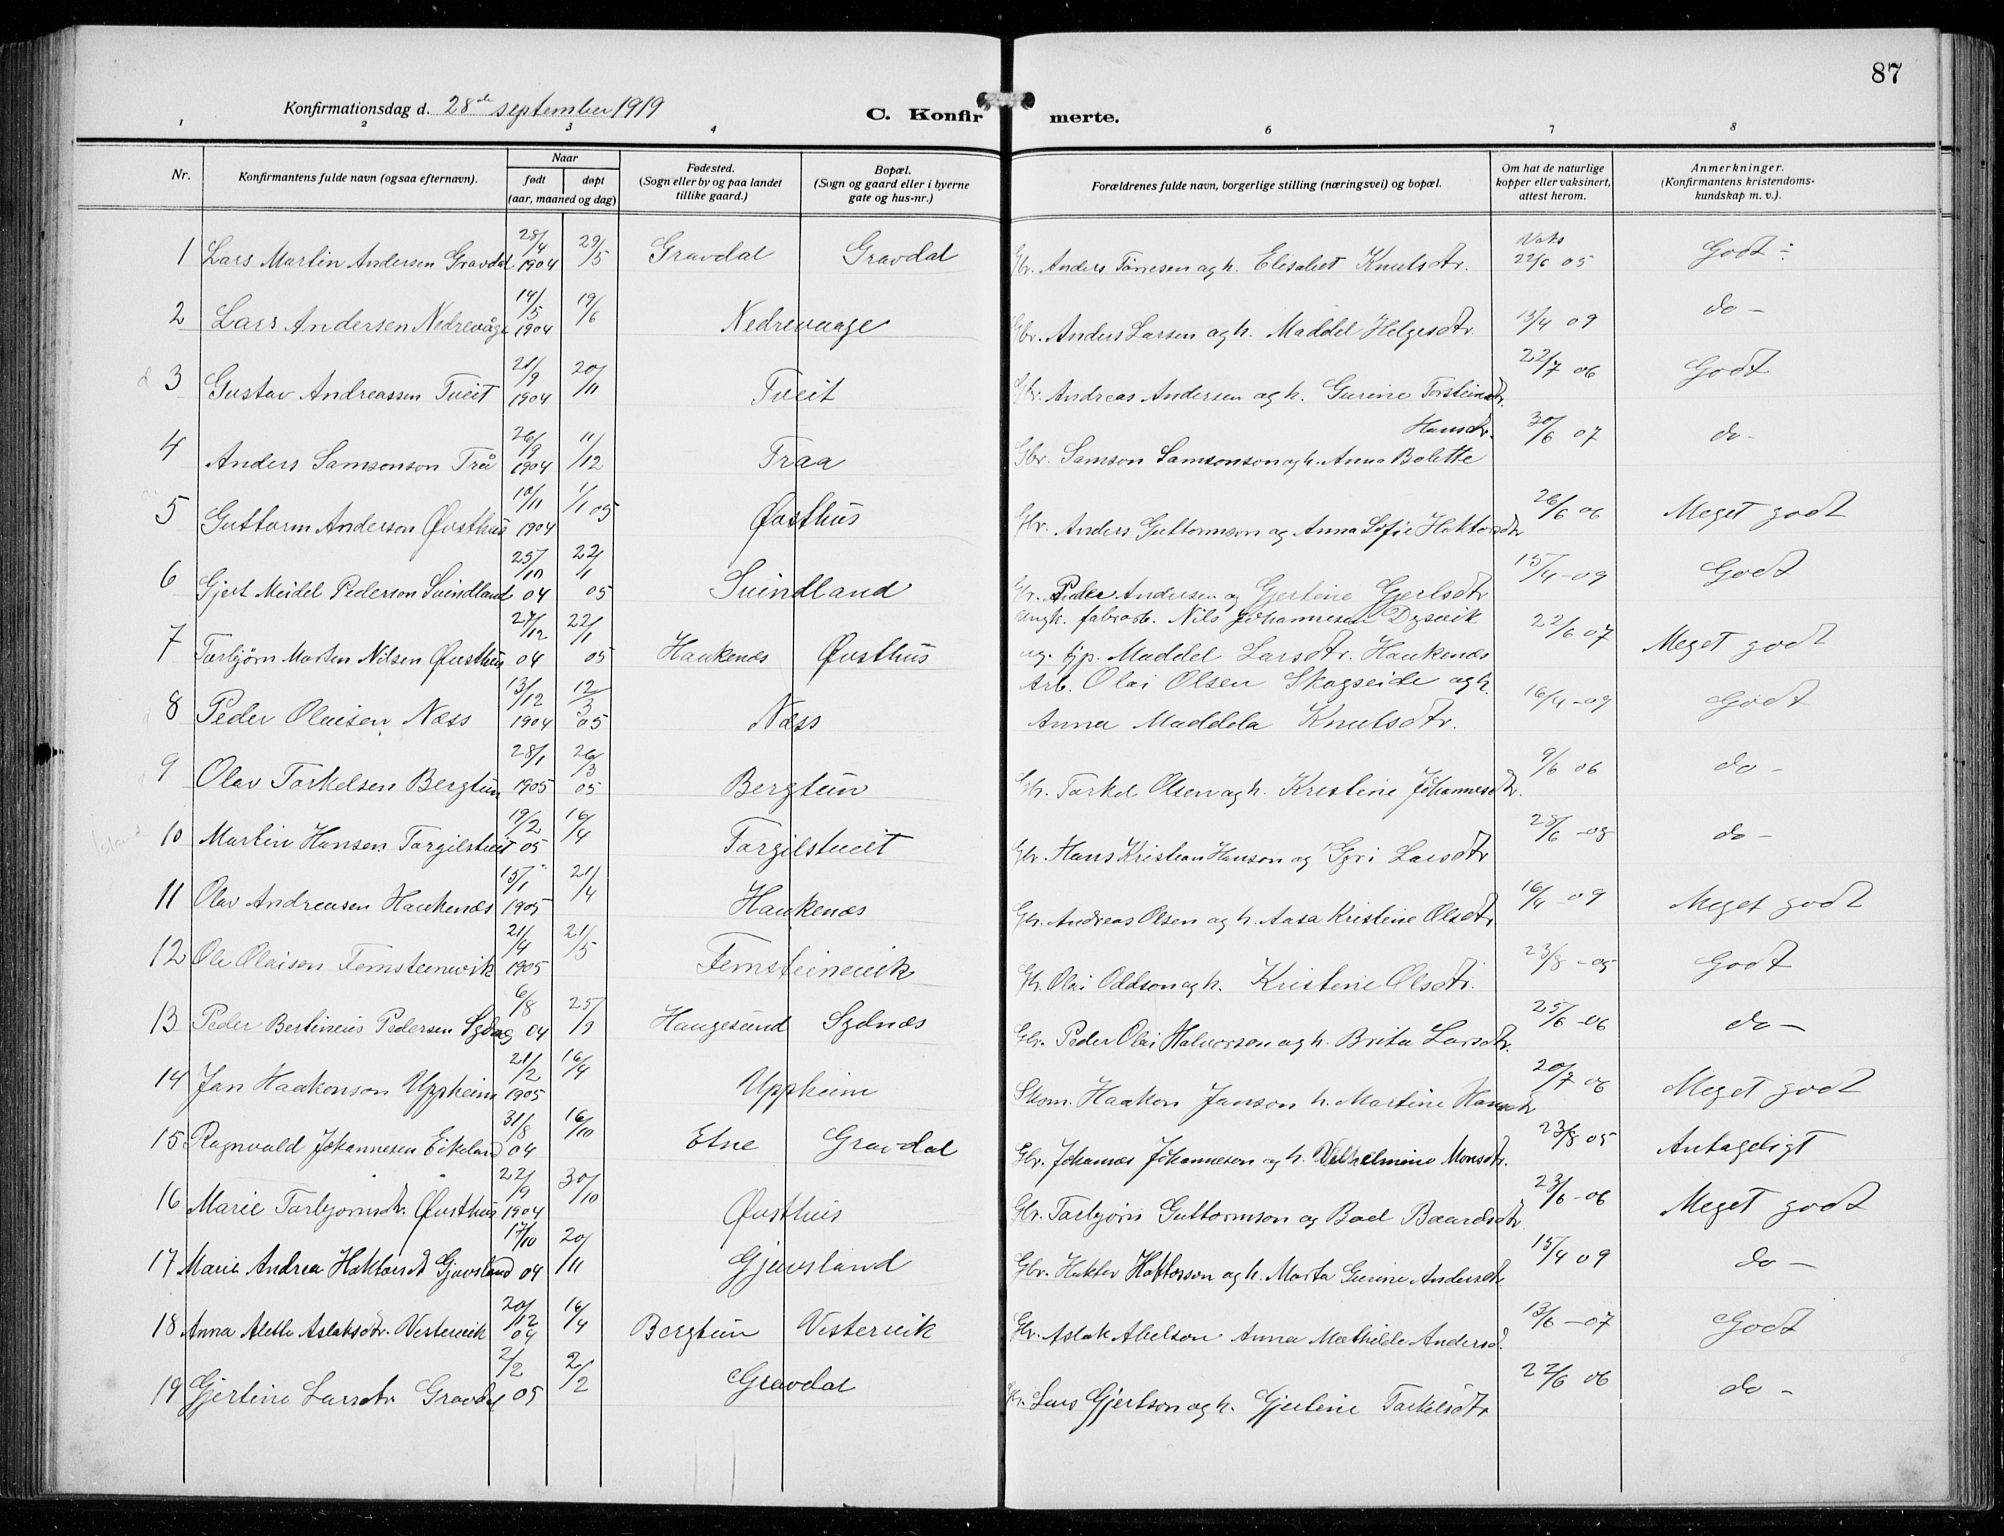 87
Konfirmationsdag d. 28de september 1919
C. Konfirmerte.
1 2 3 4 6 7 8
Nr. Konfirmantens fulde navn (ogsaa efternavn). Naar født døpt (aar, maaned og dag) Fødested. (Sogn eller by og paa landet tillike gaard.) Bopæl. (Sogn og gaard eller i byerne gate og hus-nr.) Forældrenes fulde navn, borgerlige stilling (næringsvei) og bopæl. Om hat de naturlige kopper eller vaksinert, attest herom. Anmerkninger. (Konfirmantens kristendomskundskap m. v.).
1 Lars Martin Andersen Gravdal 28/4 1904 29/5 Gravdal Gravdal Gbr. Anders Tørresen og h. Elisabet Knutsdtr. Vaks 22/6 05 Godt ÷
2 Lars Andersen Nedrevåge 14/5 1904 19/6 Nedrevaage Gbr. Anders Larsen og h. Maddel Helgesdtr. 13/4 09 do -
3 Gustav Andreassen Tveit 21/9 1904 20/11 Tveit Gbr. Andreas Andersen og h. Gurine Torsteinsdtr. 22/7 06 Godt
4 Anders Samsonson Trå 26/9 1904 11/12 Traa Gbr. Samson Samsonson og h. Anna Bolette Hansdtr. 30/6 07 do-
5 Guttorm Anderson Øvsthus 10/11 1904 1/1 05 Øvsthus Gbr. Anders Guttormson og Anna Sofie Haktorsdtr 26/6 06 Meget godt
6 Gjert Meidel Pederson Svindland 25/10 04 22/1 05 Svindland Gbr. Peder Andersen og Gjertine Gjertsdtr 15/4 -09 Godt
7 Torbjørn Morten Nilsen Øvsthus 27/12 04 22/1 05 Haukenæs Øvsthus ungk. fabrarb. Nils Johannesen Dysvik
og. tjp. Maddel Larsdtr. Haukenæs 22/6 07 Meget godt
8 Peder Olaisen Næss 13/12 1904 12/3 05 Næss Arb. Olai Olsen Skogseide og h.
Anna Maddela Knutsdtr. 16/4 -09 Godt
9 Olav Torkelsen Bergtun 28/1 1905 26/3 05 Bergtun Gbr. Torkel Olsen og h. Kristine Johannesdtr. 9/6 06 do -
10 Martin Hansen Torgilstveit 19/2 05 16/4 Torgilstveit Gbr. Hans Kristian Hanson og Gyri Larsdtr 28/6 -08 do -
11 Olav Andreasen Haukenæs 15/1 1905 21/4 Haukenæs Gbr. Andreas Olsen og h. Aasa Kristine Olsdtr 16/4 -09 Meget godt
12 Ole Olaison Femsteinevik 21/4 1905 21/5 Femsteinevik Gbr. Olai Oddson og h. Kristine Olsdtr. 23/8 -05 Godt
13 Peder Bertineus Pedersen Sydnæs 6/8 04 25/9 Haugesund Sydnæs Gbr. Peder Olai Halvorson og h. Brita Larsdtr. 25/6 -06 do -
14 Jan Haakonson Uppheim 21/2 1905 16/4 Uppheim Skom. Haakon Janson h. Martine Hansdtr 20/7 06 Meget godt
15 Ragnvald Johannesen Eikeland 31/8 04 16/10 Etne Gravdal Gbr. Johannes Johanneson og h. Vilhelmine Monsdtr. 23/8 05 Antageligt
16 Marie Torbjørnsdtr. Øvsthus 22/9 1904 30/10 Øvsthus Gbr. Torbjørn Guttormson og Boel Baardsdtr 23/6 -06 Meget godt
17 Marie Andrea Haktorsdt Gjøvsland 17/10 04 20/11 Gjøvsland Gbr. Haktor Haktorson og h. Marta Gurine Andersdtr. 15/4 09 do -
18 Anna Alette Aslaksdtr. Vestervik 20/12 04 16/4 Bergtun Vestervik Gbr. Aslak Abelson Anna Mathilde Andersd. 13/6 -07 Godt
19 Gjertine Larsdtr Gravdal 2/2 05 2/2 Gravdal Gbr. Lars Gjertson og h. Gjertine Torkelsdtr 22/6 06 do -